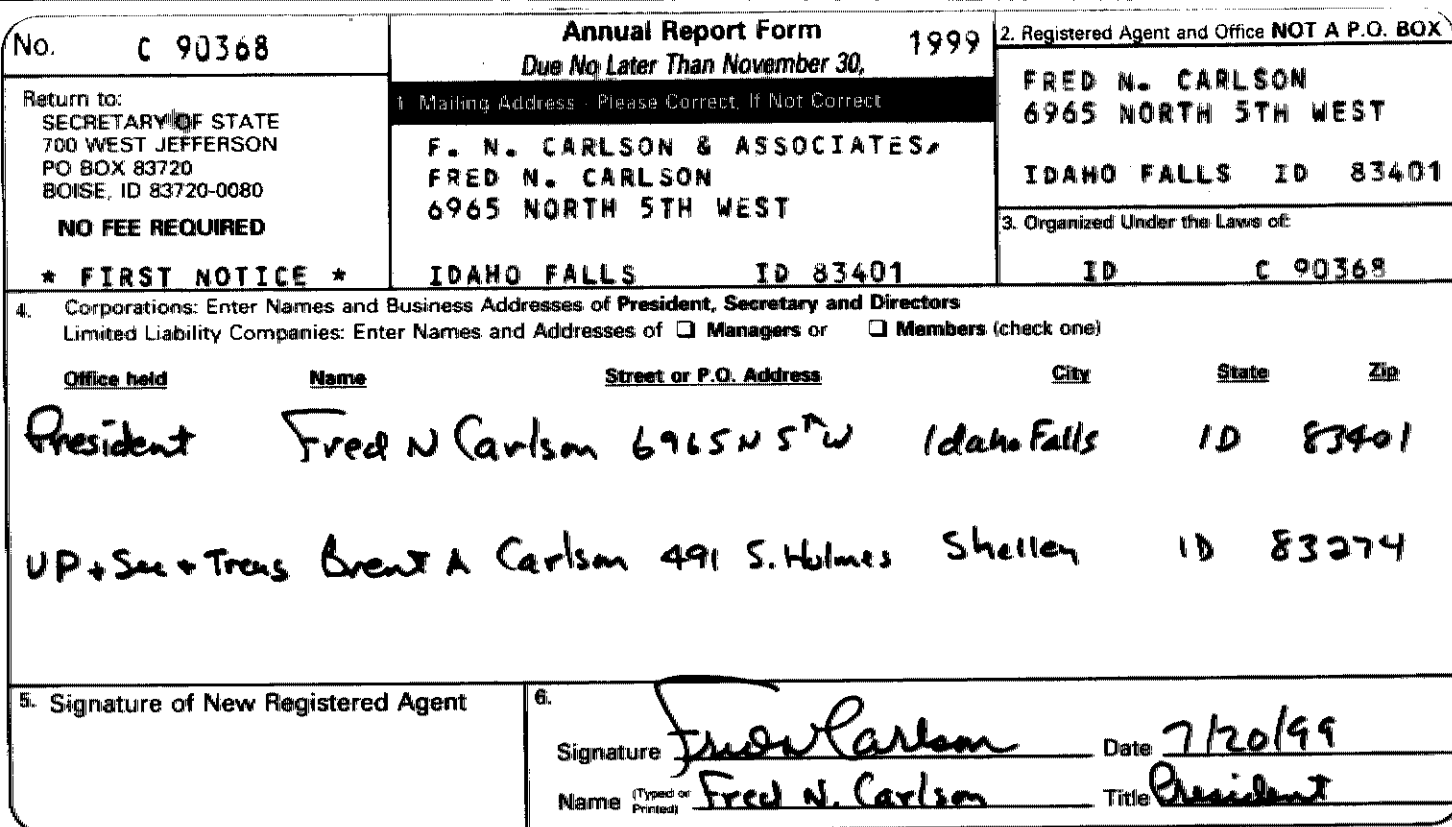 No. C 90368
Return to:
SECRETARY OF STATE
700 WEST JEFFERSON
PO BOX 83720
BOISE, ID 83720-0080
NO FEE REQUIRED
* FIRST NOTICE *
Annual Report Form 1999
Due No Later Than November 30,
1. Mailing Address - Please Correct, If Not Correct
F. N. CARLSON & ASSOCIATES,
FRED N. CARLSON
6965 NORTH 5TH WEST
IDAHO FALLS ID 83401
2. Registered Agent and Office NOT A P.O. BOX
FRED N. CARLSON
6965 NORTH 5TH WEST
IDAHO FALLS ID 83401
3. Organized Under the Laws of:
ID C 90368
4. Corporations: Enter Names and Business Addresses of President, Secretary and Directors
Limited Liability Companies: Enter Names and Addresses of ☐ Managers or ☐ Members (check one)
Office held Name Street or P.O. Address City State Zip
President Fred N Carlson 6965 N 5th W Idaho Falls ID 83401
VP + Sec + Treas Brent A Carlson 491 S. Holmes Shelley ID 83274
5. Signature of New Registered Agent
6.
Signature Fred N Carlson Date 7/20/99
Name (Typed or Printed) Fred N. Carlson Title President